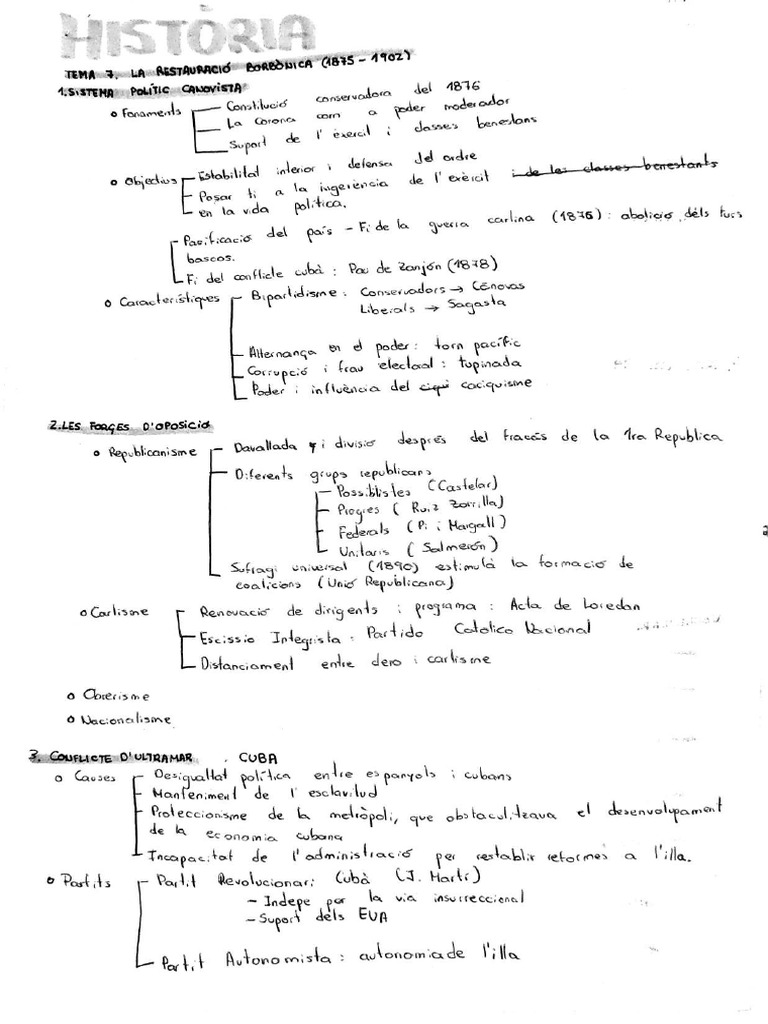 HISTÒRIA
TEMA 7. LA RESTAURACIÓ BORBÒNICA (1875 - 1902)
1. SISTEMA POLÍTIC CANOVISTA
o Fonaments
Constitució conservadora del 1876
La Corona com a poder moderador
Suport de l'èxercit i classes benestans
o Objectius
Estabilitat interior i defensa del ordre
Posar fi a la ingerència de l'exèrcit i de les classes benestants
en la vida política.
Pacificació del país - Fi de la guerra carlina (1876): abolició dels furs
bascos.
Fi del conflicte cubà: Pau de Zanjón (1878)
o Característiques
Bipartidisme: Conservadors → Cánovas
Liberals → Sagasta
Alternança en el poder: torn pacífic
Corrupció i frau electoral: tupinada
Poder i influència del caciquisme
2. LES FORÇES D'OPOSICIÓ
o Republicanisme
Davallada i divisió després del fracás de la 1ra Republica
Diferents grups republicans
Possibilistes (Castelar)
Progres (Ruiz Zorrilla)
Federals (Pi i Margall)
Unitaris (Salmerón)
Sufragi universal (1890) estimulà la formació de
coalicions (Unió Republicana)
o Carlisme
Renovació de dirigents i programa: Acta de Loredan
Escissió Integrista: Partido Catolico Nacional
Distanciament entre clero i carlisme
o Obrerisme
o Nacionalisme
3. CONFLICTE D'ULTRAMAR. CUBA
o Causes
Desigualtat política entre espanyols i cubans
Manteniment de l'esclavitud
Proteccionisme de la metròpoli, que obstaculitzava el desenvolupament
de la economia cubana
Incapacitat de l'administració per restablir reformes a l'illa.
o Partits
Partit Revolucionari Cubà (J. Martí)
- Indepe per la via insurreccional
- Suport dels EUA
Partit Autonomista: autonomia de l'illa